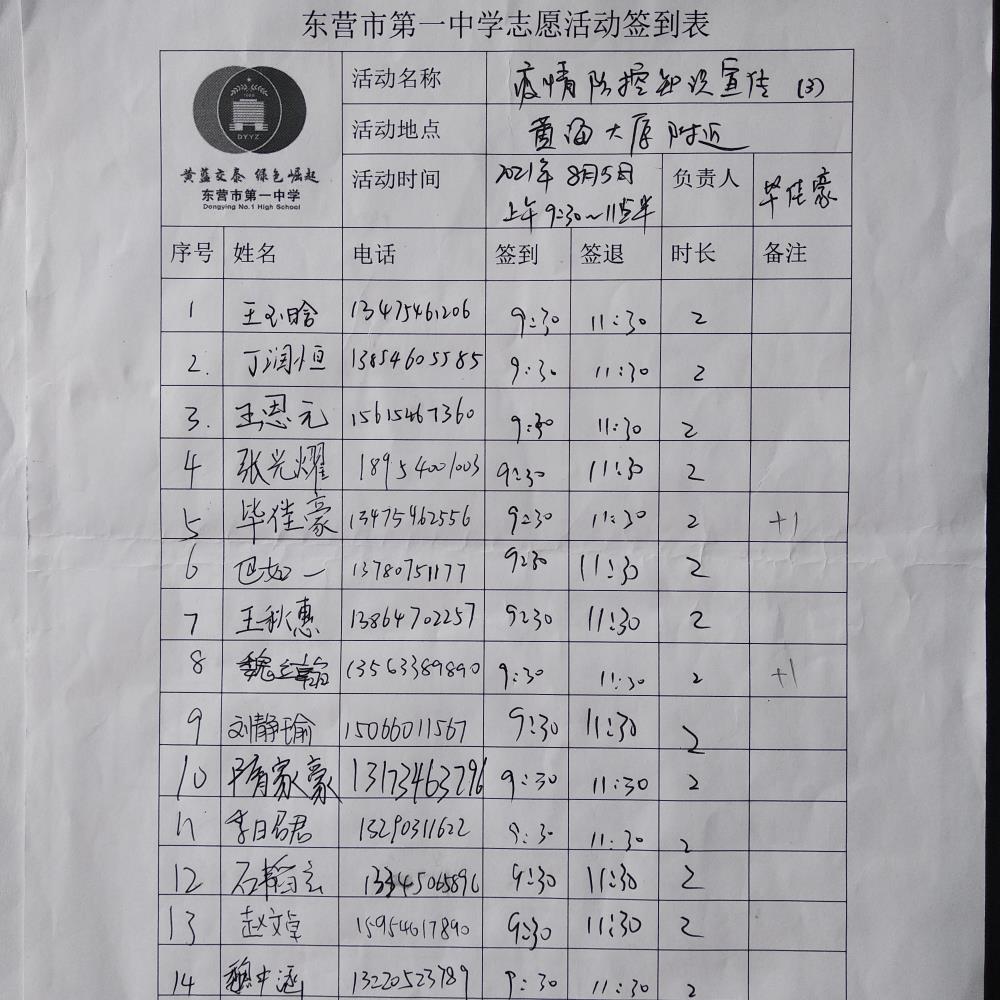 东营市第一中学志愿活动签到表
DYYZ
黄蓝交泰 绿色崛起
东营市第一中学
Dongying No.1 High School
活动名称 疫情防控知识宣传 (3)
活动地点 黄海大厦附近
活动时间 2021年8月5日
上午9:30~11点半
负责人 毕佳豪
序号 姓名 电话 签到 签退 时长 备注
1 王玉晗 13475461206 9:30 11:30 2
2. 丁润恒 13854605585 9:30 11:30 2
3. 王恩元 15615467360 9:30 11:30 2
4 张光耀 18954001003 9:30 11:30 2
5 毕佳豪 13475462556 9:30 11:30 2 +1
6 巴如一 13780751177 9:30 11:30 2
7 王秋惠 13864702257 9:30 11:30 2
8 魏 13563389890 9:30 11:30 2 +1
9 刘静瑜 15066011567 9:30 11:30 2
10 隋家豪 13173463796 9:30 11:30 2
11 李日君 13290311622 9:30 11:30 2
12 石韬玄 13345065896 9:30 11:30 2
13 赵文卓 15954617890 9:30 11:30 2
14 魏中涵 13220523789 9:30 11:30 2